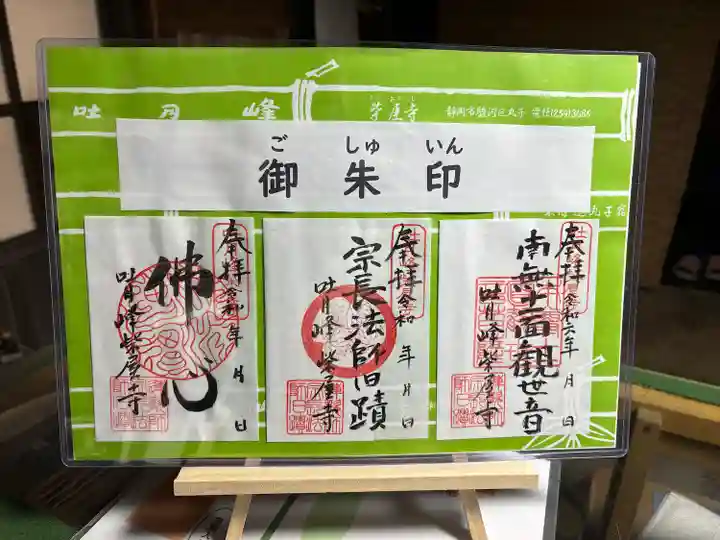 吐月峰 柴屋寺 静岡市駿河区丸子
ご しゅ いん
御朱印
奉拝 令和 年 月 日
佛心
吐月峰柴屋寺
奉拝 令和 年 月 日
宗長法師旧蹟
吐月峰柴屋寺
奉拝 令和六年 月 日
南無十一面観世音
吐月峰柴屋寺